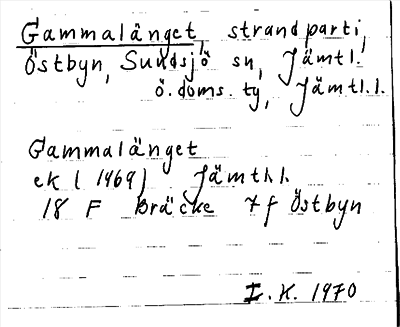 Gammalänget, strandparti,
Östbyn, Sundsjö sn, Jämtl.
ö. doms. ty, Jämtl.l.
Gammalänget
ek (1969) Jämtl.l.
18 F Bräcke 7f Östbyn
I. K. 1970